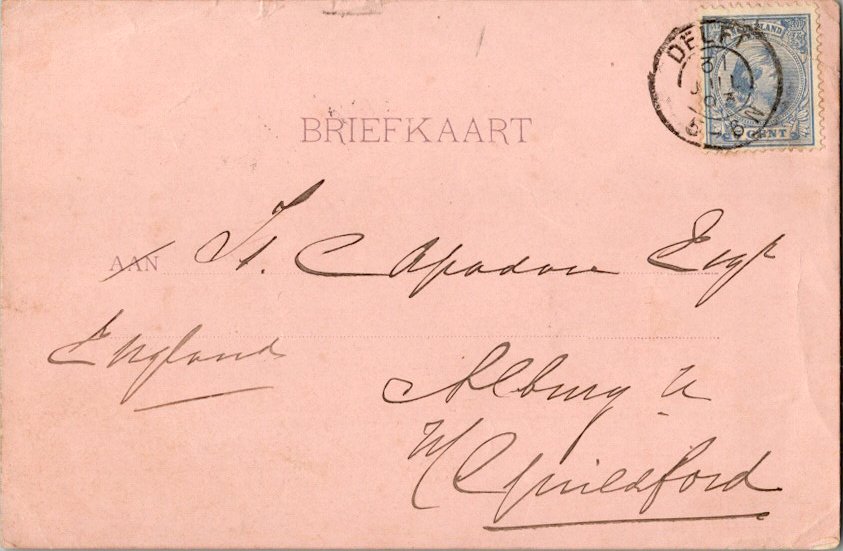 DELFT
5 CENT
BRIEFKAART
AAN H. Capadose Esqr
England
Alburg
n/ Guildford